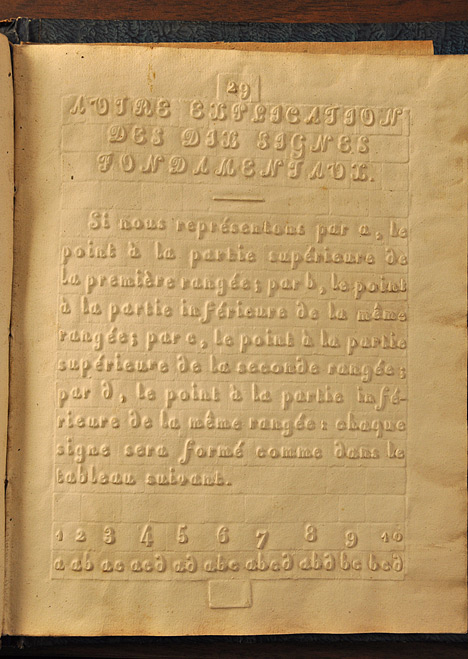 29
AUTRE EXPLICATION
DES DIX SIGNES
FONDAMENTAUX.
Si nous représentons par a, le
point à la partie supérieure de
la première rangée; par b, le point
à la partie inférieure de la même
rangée; par c, le point à la partie
supérieure de la seconde rangée;
par d, le point à la partie infé-
rieure de la même rangée: chaque
signe sera formé comme dans le
tableau suivant.
1 2 3 4 5 6 7 8 9 10
a ab ac acd ad abc abcd abd bc bcd